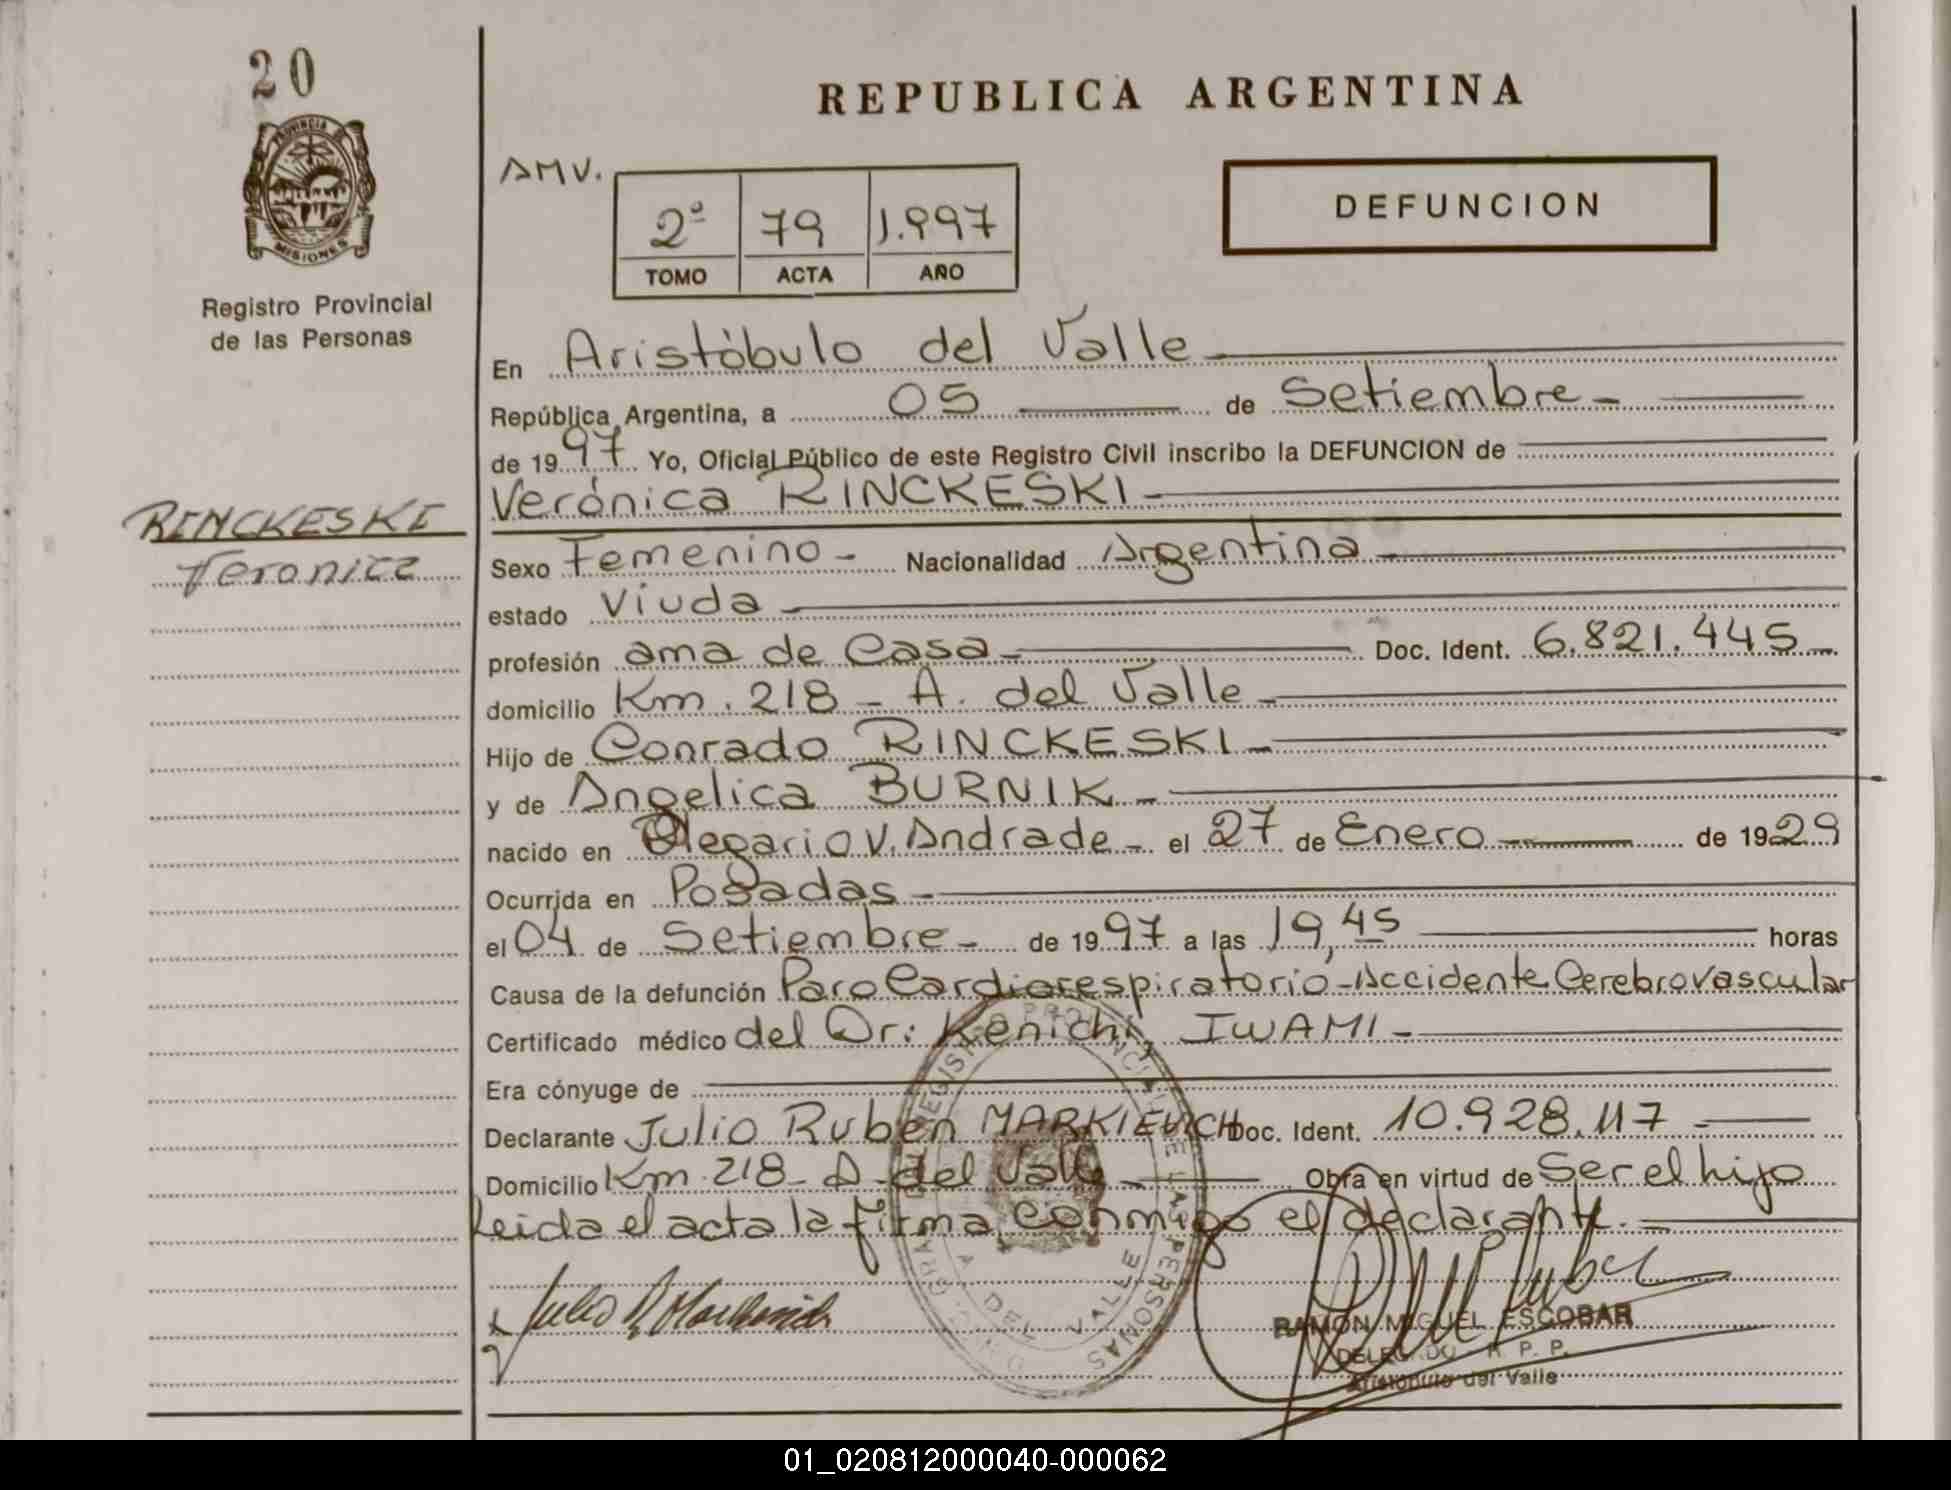 20
PROVINCIA DE
MISIONES
Registro Provincial
de las Personas
RINCKESKI
Veronica
REPUBLICA ARGENTINA
AMV.
2º 79 1.997
TOMO ACTA AÑO
DEFUNCION
En Aristóbulo del Valle
República Argentina, a 05 de Setiembre
de 1997 Yo, Oficial Público de este Registro Civil inscribo la DEFUNCION de
Verónica RINCKESKI
Sexo Femenino Nacionalidad Argentina
estado Viuda
profesión ama de Casa Doc. Ident. 6.821.445
domicilio Km. 218 - A. del Valle
Hijo de Conrado RINCKESKI
y de Angelica BURNIK
nacido en Olegario V. Andrade el 27 de Enero de 1929
Ocurrida en Posadas
el 04 de Setiembre de 1997 a las 19,45 horas
Causa de la defunción Paro Cardiorespiratorio - Accidente Cerebrovascular
Certificado médico del Dr: Kenichi, IWAMI
Era cónyuge de
Declarante Julio Ruben MARKIEVICH Doc. Ident. 10.928.117
Domicilio Km. 218 - A. del Valle Obra en virtud de Ser el hijo
Leida el acta la firma conmigo el declarante.
Julio R Markievich
RAMON MIGUEL ESCOBAR
DELEGADO - R. P. P.
Aristóbulo del Valle
01_020812000040-000062